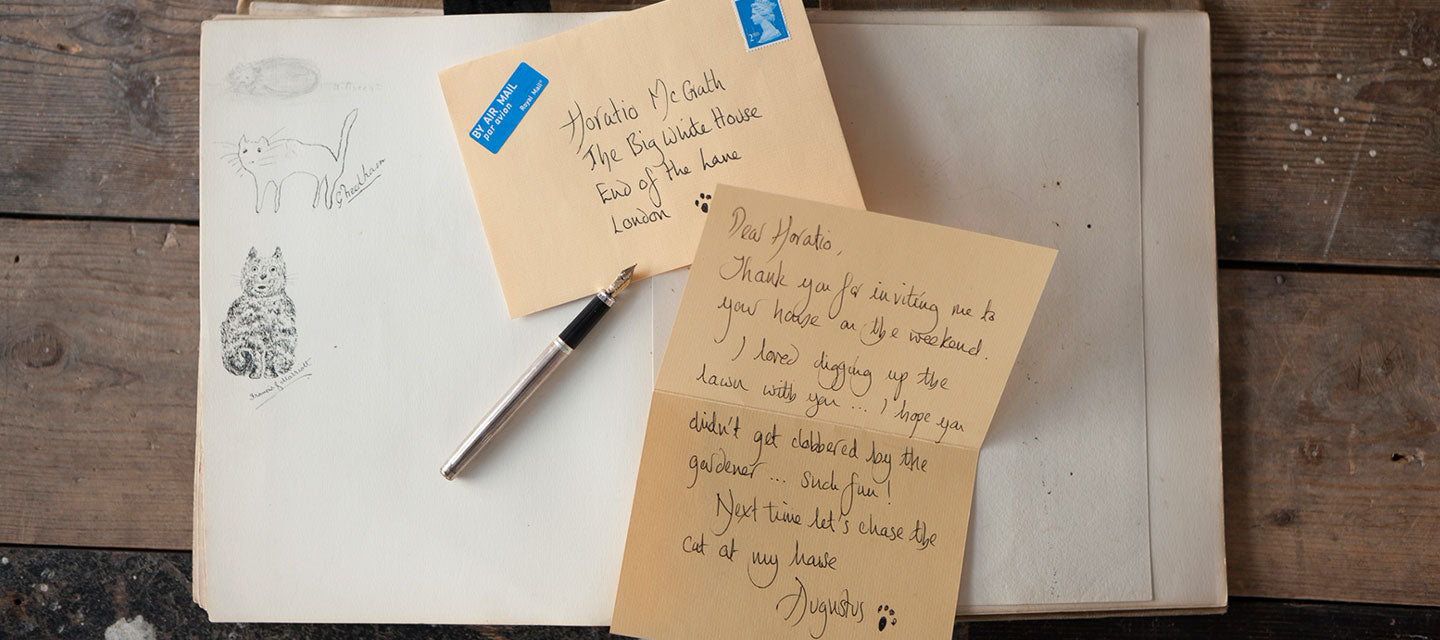 Cheetham
BY AIR MAIL
par avion
Royal Mail
2nd
Horatio McGrath
The Big White House
End of the Lane
London
Dear Horatio,
Thank you for inviting me to
your house on the weekend.
I loved digging up the
lawn with you ... I hope you
didn't get clobbered by the
gardener ... such fun!
Next time let's chase the
cat at my house
Augustus